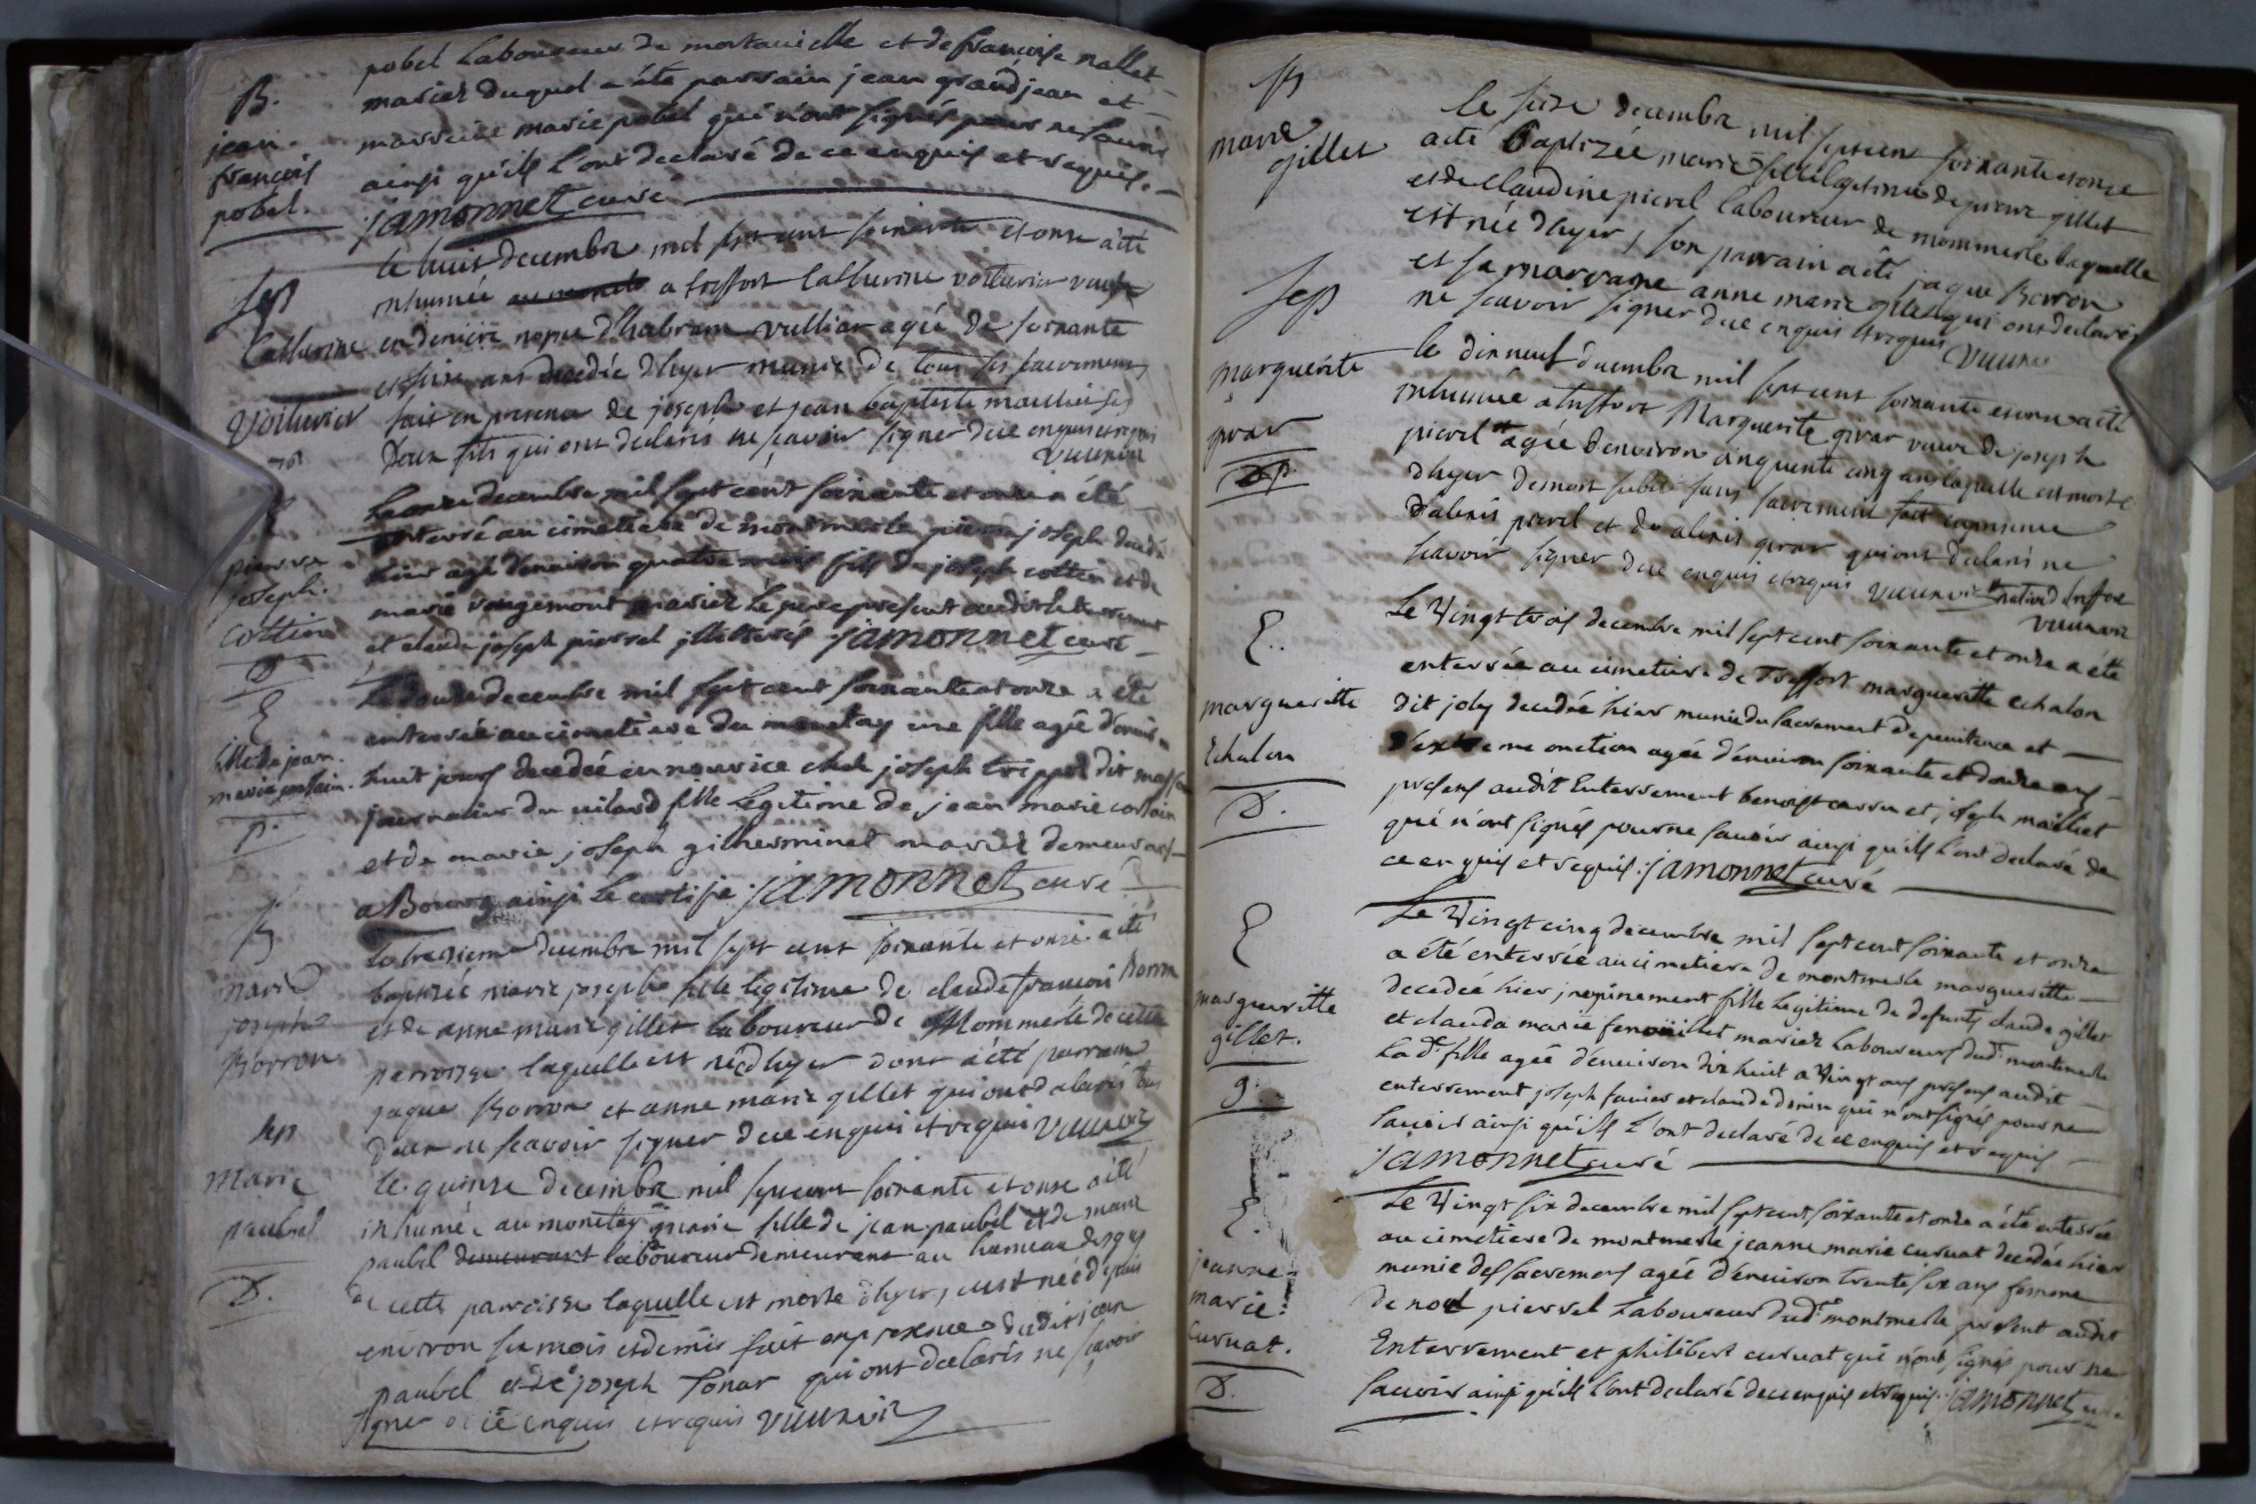 pobel Laboureur de mortaurelle et de francoise nallet
B.
mariez duquel a été parrain jean grandjean et
jean.
marreine marie pobel qui n'ont signés pour ne savoir
francois
ainsi qu'ils l'ont declaré de ce enquis et requis.
pobel.
jamonnet curé
le huit decembre mil sept cent soixante et onze a eté
Sep
inhumée a treffort Catherine voiturier veufve
Catherine
en derniere nopce d'habram vulliar agée de soixante
et seize ans decedée d'hyer munie de tous ses sacremens
voiturier
fait en presence de joseph et jean baptiste
Deux fils qui ont declarés ne scavoir signer de ce enquis et requis
vuunoir
Le onze decembre mil sept cent soixante et onze a été
enterré au cimetiere de montmerle pierre joseph decedé
pierre
hier agé d'environ quatre mois fils de joseph cottin et de
joseph.
marie rougemont mariez Le pere present audit Enterrement
cottin
et claude joseph pierrel illitterés jamonnet curé
D
Le douze decembre mil sept cent soixante et onze a été
E
enterrée au cimetiere du monetay une fille agée d'environ
fille de jean
huit jours decedée en nourice chez joseph trippoz dit
marie
journalier du vilard fille Legitime de jean marie
D.
et de marie joseph gilherminet mariez demeurans
a Bourg ainsi Le certifie jamonnet curé
B
Le treziem decembre mil sept cent soixante et onze a été
marie
baptizée marie josephe fille legitime de claude francois Borron
josephe
et de anne marie gillet laboureur de Mommerle de cette
Borron
parroisse laquelle est née d'hyer dont a été parrain
jaque Borron et anne marie gillet qui ont declarés tous
deux ne scavoir signer de ce enquis et requis vuunoir
Sep
Marie
le quinze decembre mil sept cent soixante et onze a eté
paubel
inhumée au monetay marie fille de jean paubel et de marie
paubel laboureur demeurant au hameau
D.
de cette parroisse laquelle est morte d'hyer,
environ six mois et demis fait en presence dudit jean
paubel et de joseph Tonar qui ont declarés ne scavoir
signer de ce enquis et requis vuunoir
B
le seize decembre mil sept cent soixante et onze
marie
a eté baptizée marie fille legitime de pierre gillet
gillet
et de Claudine pierel laboureur de mommerle laquelle
est née d'hyer, son parrain a eté jaque Borron
et sa marraine anne marie gillet qui ont declarés
Sep
ne scavoir signer de ce enquis et requis vuunoir
marguerite
le dix neuf decembre mil sept cent soixante et onze a eté
inhumée a treffort Marguerite girar veuve de joseph
girar
pierel agée d'environ cinquante cinq ans laquelle est morte
d'hyer de mort subite sans sacrement fait en presence
D'alexis pierel et de alexis girar qui ont declarés ne
scavoir signer de ce enquis et requis vuunoir native de treffor
vuunoir
E..
Le Vingt trois decembre mil sept cent soixante et onze a été
enterrée au cimetiere de Treffort margueritte echalon
margueritte
dit joly decedée hier munie du sacrement de penitence et
Echalon
d'extreme onction agée d'environ soixante et douze ans
presens audit Enterrement benoist carru et joseph maillet
D.
qui n'ont signés pour ne savoir ainsi qu'ils l'ont declaré de
ce enquis et requis. jamonnet curé
E
Le Vingt cinq decembre mil sept cent soixante et onze
a été enterrée au cimetiere de montmerle margueritte
margueritte
decedée hier inopinement fille Legitime de defunts claude gillet
gillet.
et clauda marie fenouillet mariez Laboureurs dud. montmerle
g.
La de. fille agée d'environ dix huit a Vingt ans presens audit
enterrement joseph favier et claude qui n'ont signés pour ne
savoir ainsi qu'ils l'ont declaré de ce enquis et requis
jamonnet curé
E.
Le Vingt six decembre mil sept cent soixante et onze a été enterrée
au cimetiere de montmerle jeanne marie curvat decedée hier
jeanne
munie des sacremens agée d'environ trente six ans femme
marie.
de noel pierrel Laboureur dud. montmerle present audit
curvat.
Enterrement et philibert curvat qui n'ont signés pour ne
D.
savoir ainsi qu'ils l'ont declaré de ce enquis et requis. jamonnet curé